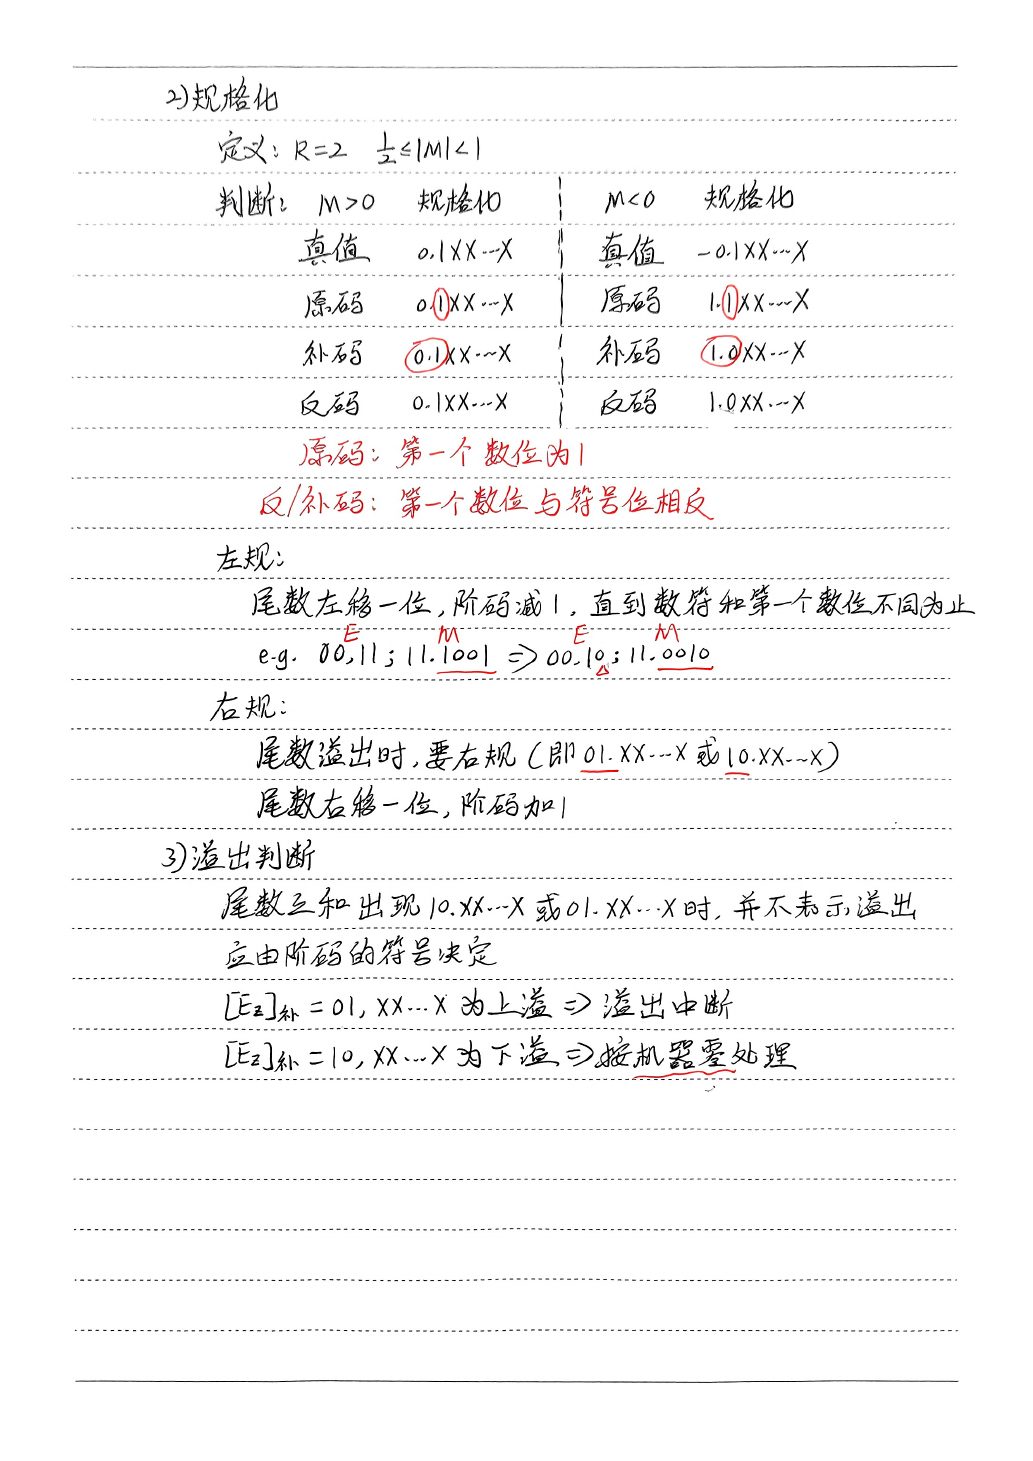 2)规格化
定义: R=2 1/2≤|M|<1
判断: M>0 规格化 M<0 规格化
真值 0.1XX…X 真值 -0.1XX…X
原码 0.1XX…X 原码 1.1XX…X
补码 0.1XX…X 补码 1.0XX…X
反码 0.1XX…X 反码 1.0XX…X
原码: 第一个数位为1
反/补码: 第一个数位与符号位相反
左规:
尾数左移一位,阶码减1,直到数符和第一个数位不同为止
E M E M
e.g. 00,11; 11.1001 => 00,10; 11.0010
右规:
尾数溢出时,要右规(即01.XX…X或10.XX…X)
尾数右移一位,阶码加1
3)溢出判断
尾数之和出现10.XX…X或01.XX…X时,并不表示溢出
应由阶码的符号决定
[Ez]补=01,XX…X为上溢=>溢出中断
[Ez]补=10,XX…X为下溢=>按机器零处理